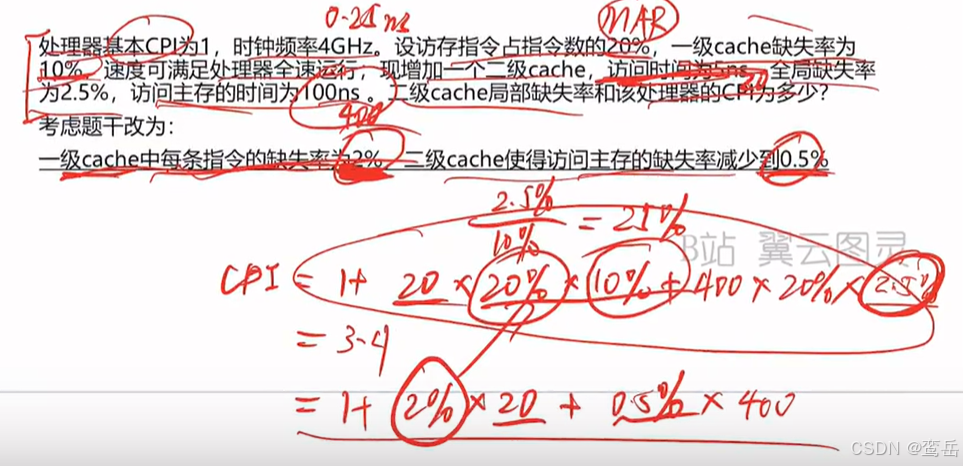 0.25ns
MAR
处理器基本CPI为1，时钟频率4GHz。设访存指令占指令数的20%，一级cache缺失率为
10%，速度可满足处理器全速运行，现增加一个二级cache，访问时间为5ns，全局缺失率
20
为2.5%，访问主存的时间为100ns 。二级cache局部缺失率和该处理器的CPI为多少?
400
考虑题干改为：
一级cache中每条指令的缺失率为2%，二级cache使得访问主存的缺失率减少到0.5%
2.5%/10% = 25%
B站 翼云图灵
CPI = 1+ 20 × 20% × 10% + 400 × 20% × 2.5%
= 3.4
= 1+ 2% × 20 + 0.5% × 400
CSDN @鸾岳